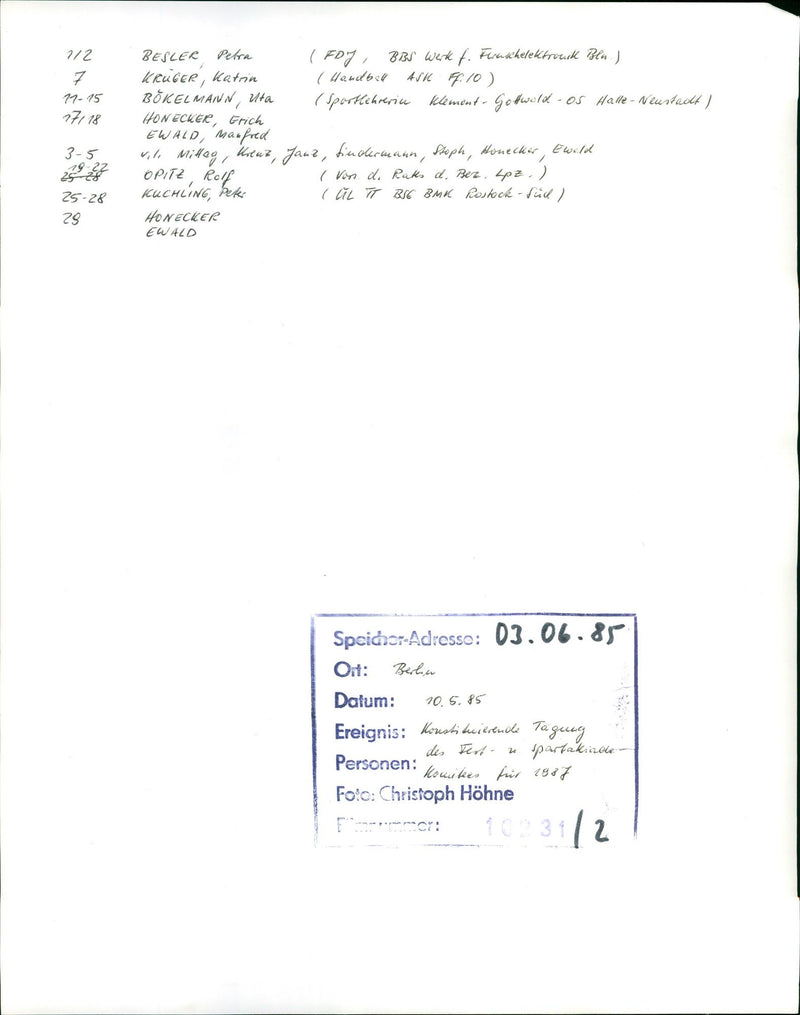 1/2 BESLER, Petra ( FDJ, BBS Werk f. Fernsehelektronik Bln )
7 KRÜGER, Katrin ( Handball ASK Ff./O )
11-15 BÖKELMANN, Uta (Sportlehrerin Klement-Gottwald-OS Halle-Neustadt)
17/18 HONECKER, Erich
EWALD, Manfred
3-5 v.l. Mittag, Krenz, Janz, Sindermann, Stoph, Honecker, Ewald
19-22
25-28 OPITZ, Rolf ( Vors. d. Rates d. Bez. Lpz. )
25-28 KÜCHLING, Peter ( ÜL TT BSG BMK Rostock-Süd )
29 HONECKER
EWALD
Speicher-Adresse: 03.06.85
Ort: Berlin
Datum: 10.5.85
Ereignis: Konstituierende Tagung
des Fest- u Spartakiade-
Personen: Komitees für 1987
Foto: Christoph Höhne
Filmnummer: 31/2